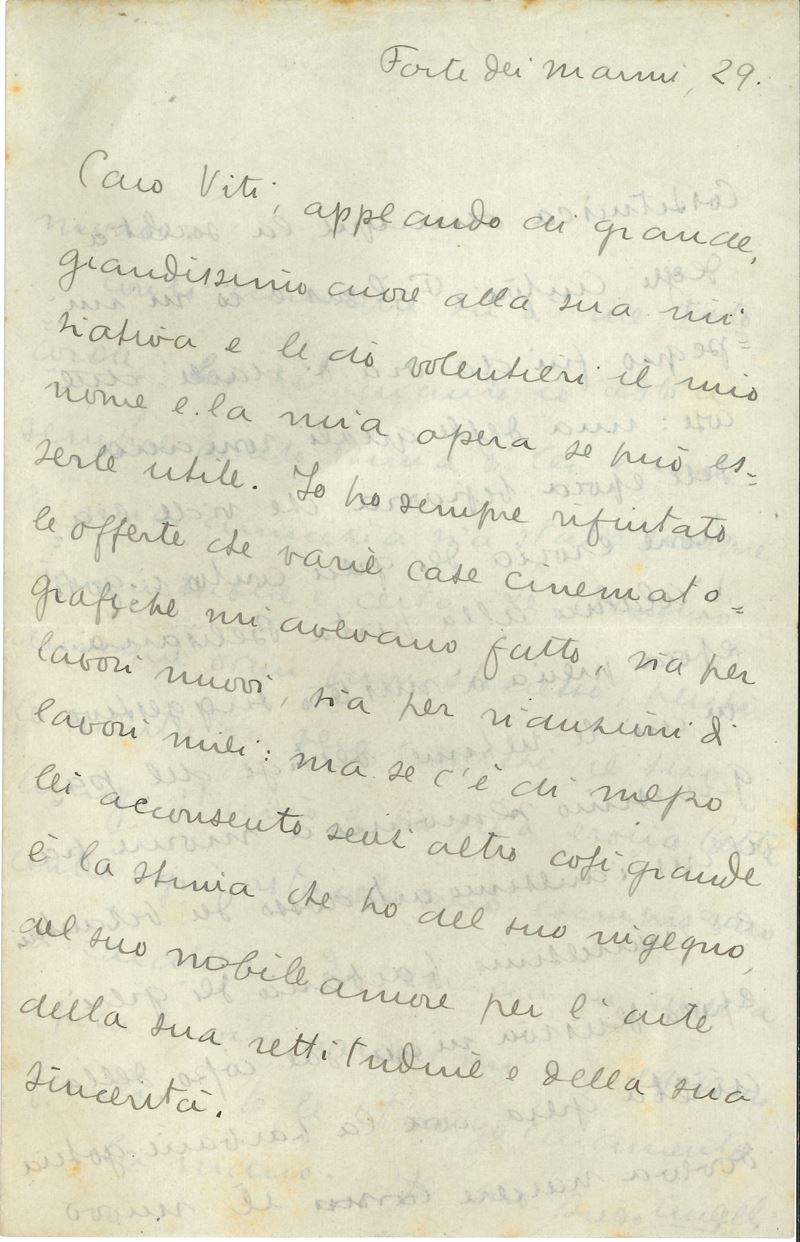 Forte dei Marmi, 29.
Caro Viti, applaudo di grande,
grandissimo cuore alla sua ini
ziativa e le dò volentieri il mio
nome e la mia opera se può es=
serle utile. Io ho sempre rifiutato
le offerte che varie case cinemato=
grafiche mi avevano fatto, sia per
lavori nuovi, sia per riduzioni di
lavori miei: ma se c'è di mezzo
lei acconsento senz'altro così grande
è la stima che ho del suo ingegno,
del suo nobile amore per l'arte
della sua rettitudine e della sua
sincerità.